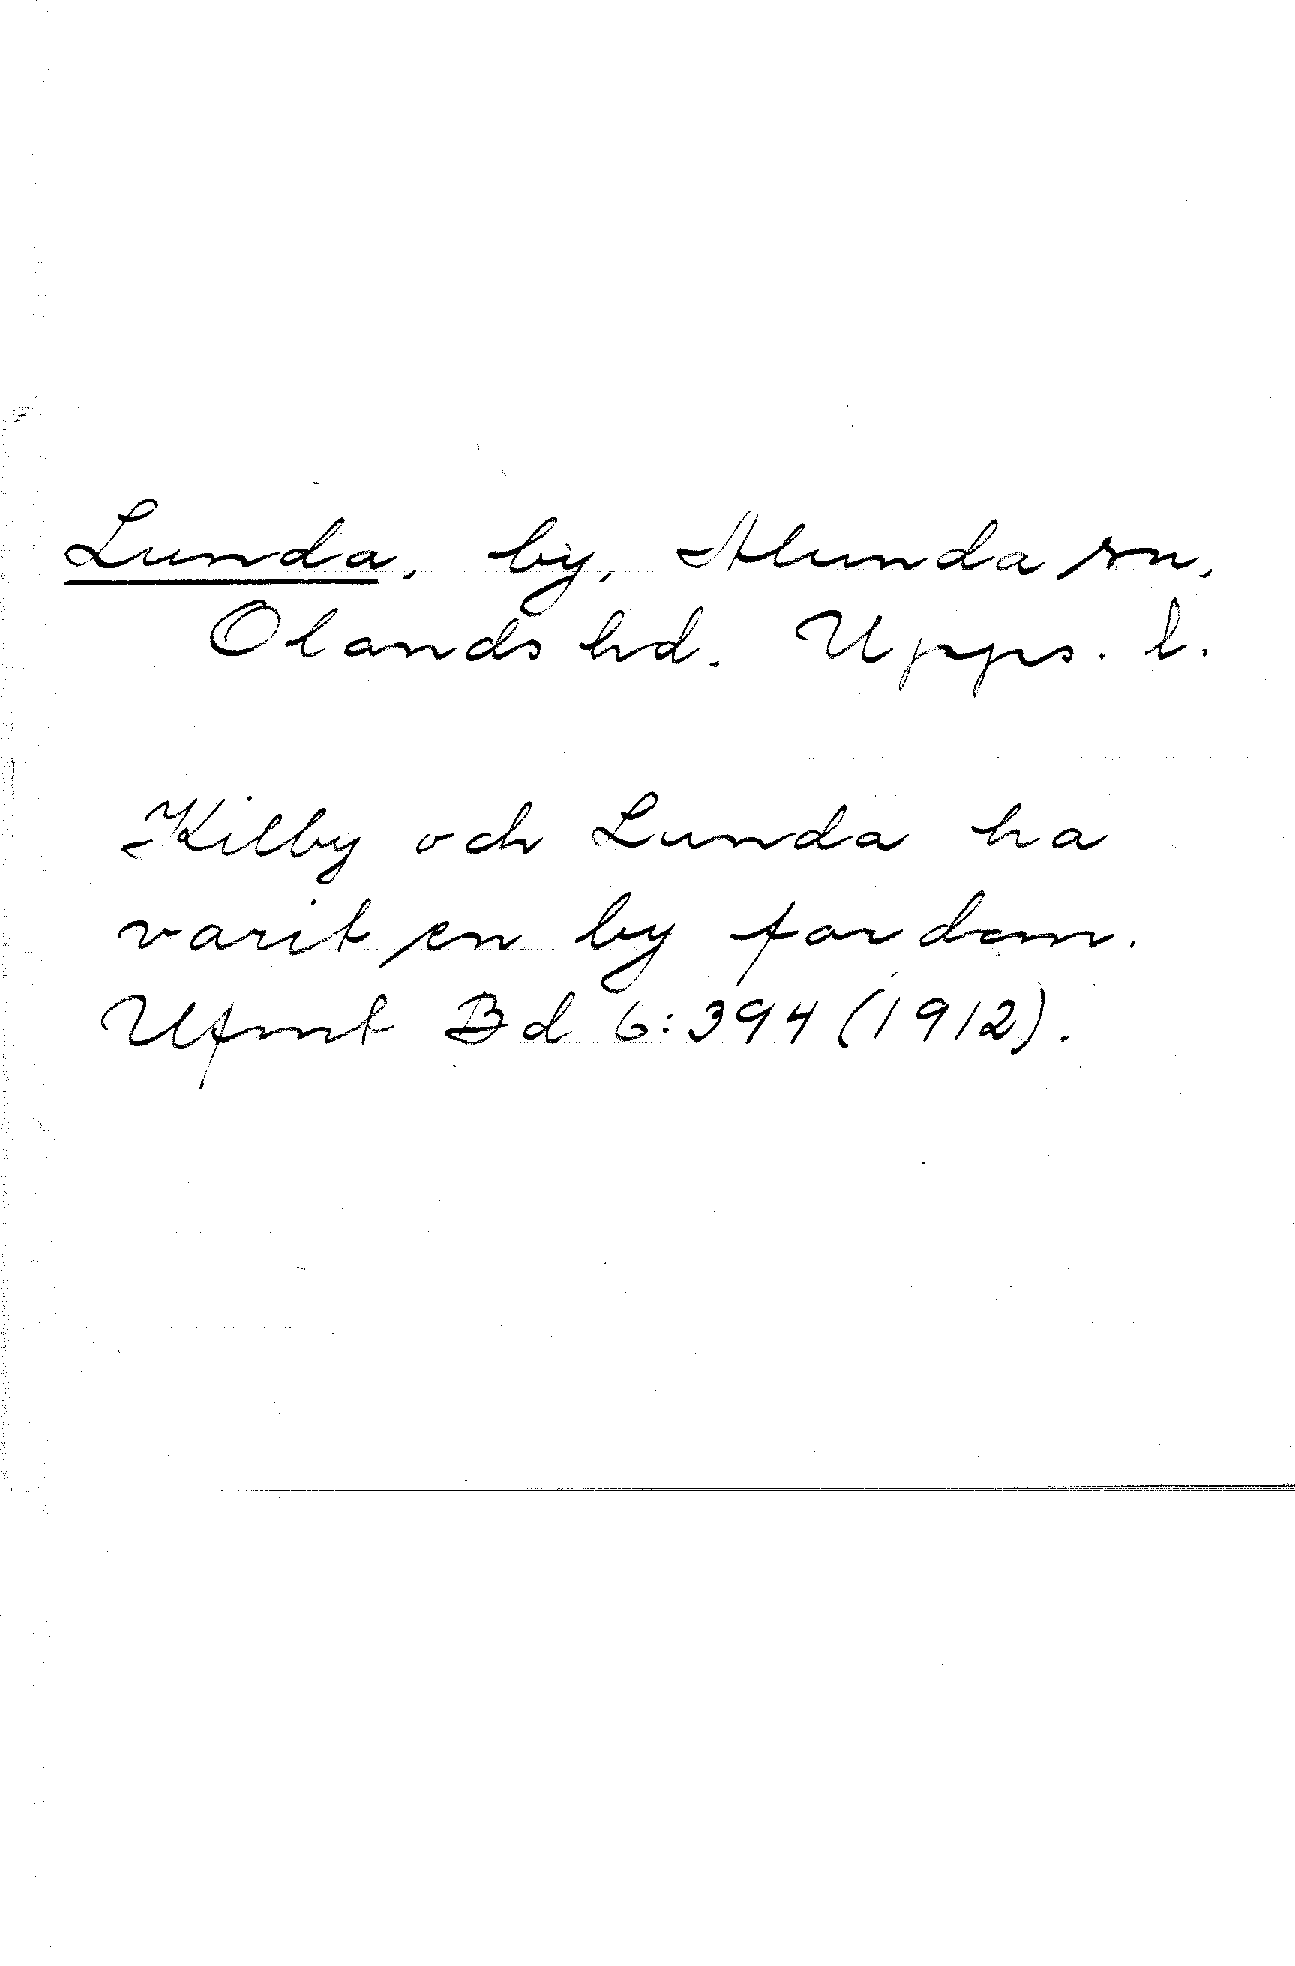 Lunda, by, Alunda sn,
Olands hd. Upps. l.
Kilby och Lunda ha
varit en by fordom.
Ufmt Bd 6:394 (1912).